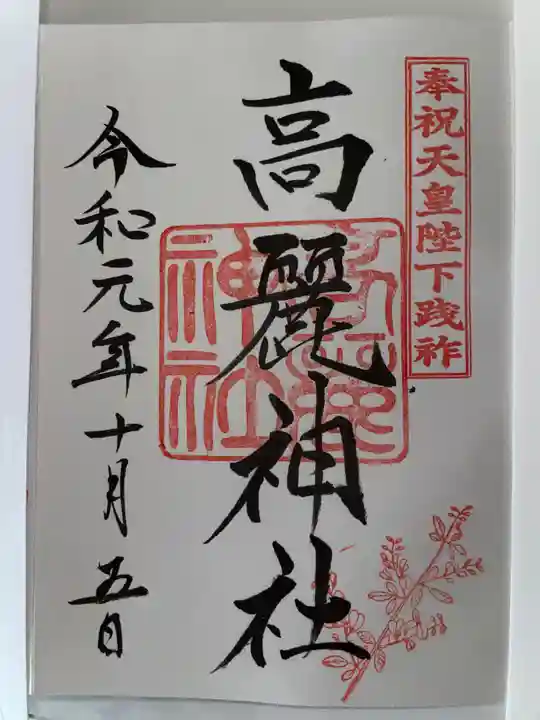 奉祝天皇陛下践祚
高麗神社
令和元年十月五日